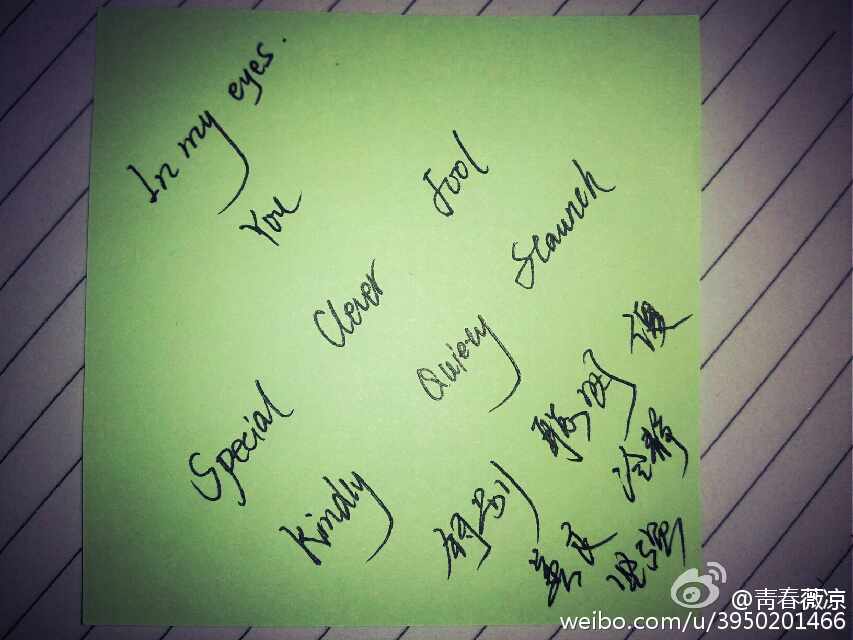 In my eyes.
You
Special Clever Fool
Kindly Quiery Staunch
特别 聪明 傻
善良 冷静
坚强
@青春薇凉
weibo.com/u/3950201466